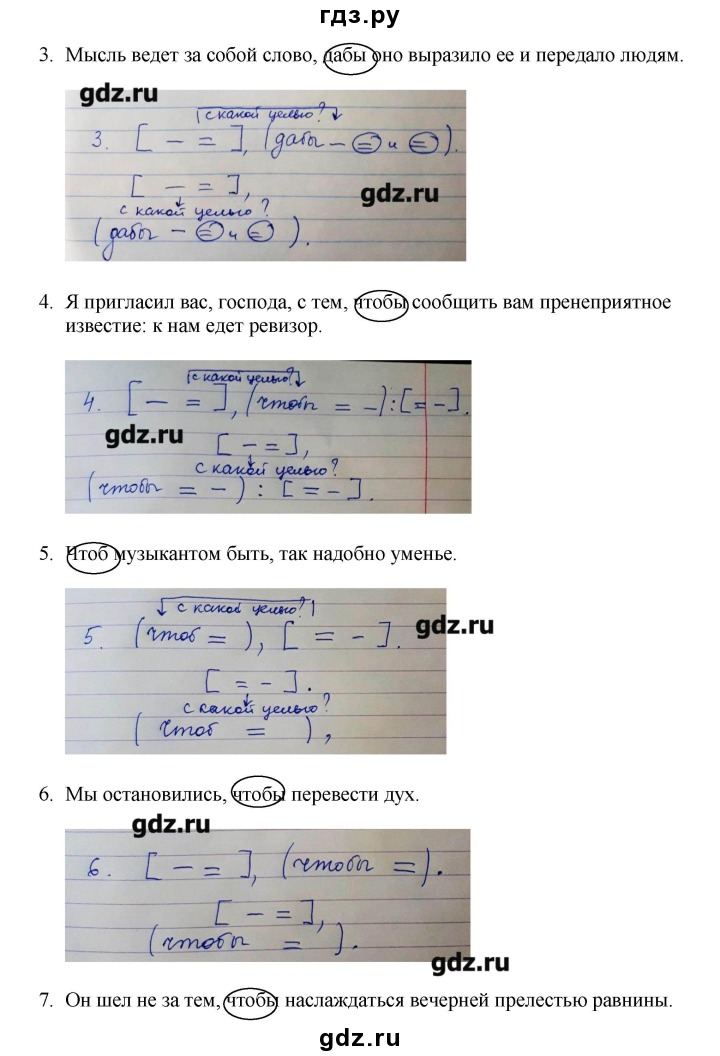 гдз.ру
3. Мысль ведет за собой слово, дабы оно выразило ее и передало людям.
gdz.ru
с какой целью?
3. [ — = ], (дабы — = и = ).
[ — = ], gdz.ru
с какой целью?
(дабы — = и = ).
4. Я пригласил вас, господа, с тем, чтобы сообщить вам пренеприятное
известие: к нам едет ревизор.
с какой целью?
4. [ — = ], (чтобы = —) : [ = — ].
gdz.ru
[ — = ],
с какой целью?
(чтобы = — ) : [ = — ].
5. Чтоб музыкантом быть, так надобно уменье.
с какой целью? gdz.ru
5. (чтоб = ), [ = — ].
[ = — ].
с какой целью?
( чтоб = ),
6. Мы остановились, чтобы перевести дух.
gdz.ru
6. [ — = ], (чтобы = ).
[ — = ],
(чтобы = ).
gdz.ru
7. Он шел не за тем, чтобы наслаждаться вечерней прелестью равнины.
gdz.ru